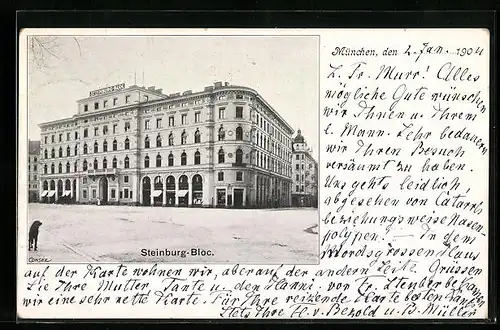 STEINBURG-BLOC
München, den 2. Jan. 1904
L. Fr. Murr! Alles
mögliche Gute wünschen
wir Ihnen u Ihrem
l. Mann. Sehr bedauern
wir Ihren Besuch
versäumt zu haben.
Uns gehts leidlich,
abgesehen von Catarrh
beziehungsweise Nasen-
polypen. – In dem
Mordsgrossen Haus
Steinburg-Bloc.
auf der Karte wohnen wir, aber auf der andern Seite. Grüssen
Sie Ihre Mutter, Tante u. den Hanni. von Fr. bekamen
wir eine sehr nette Karte. Für Ihre reizende Karte besten Dank
Stets Ihre H. v. Bezold u. B. Müller